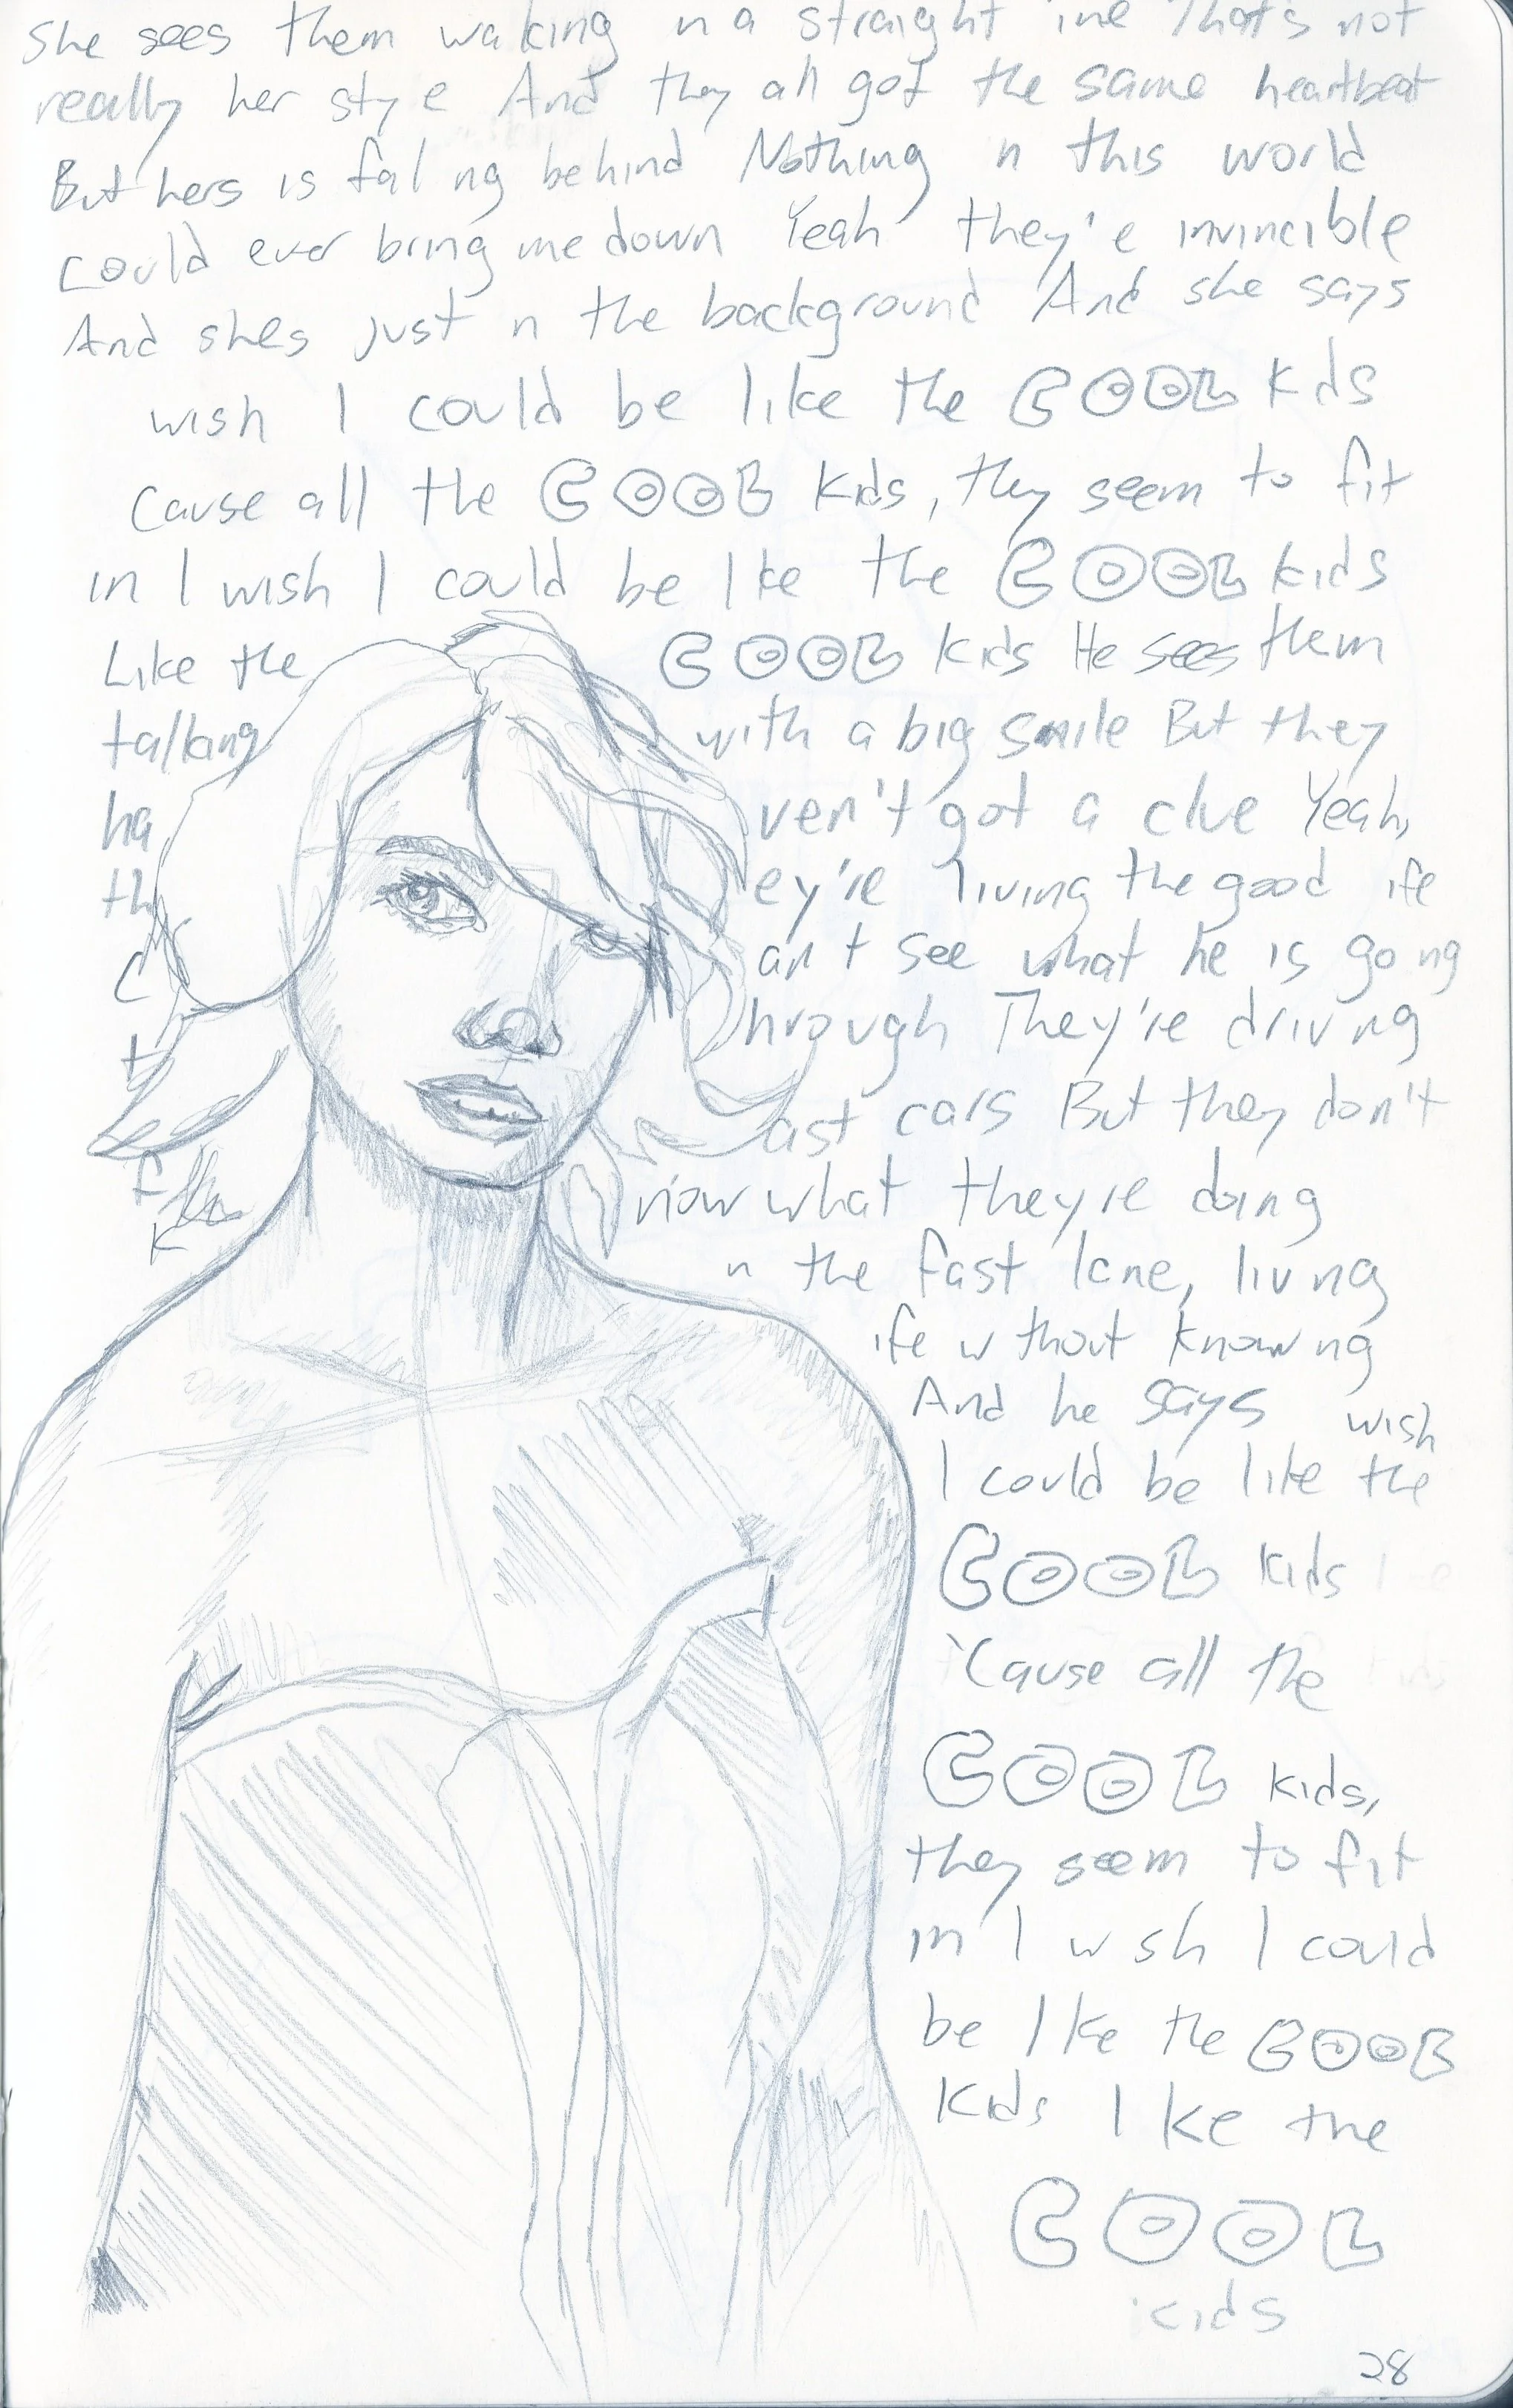 She sees them walking n a straight ine That's not
really her sty e And they all got the same heartbeat
But hers is fal ng behind Nothing n this world
could ever bring me down Yeah they'e invincible
And shes just n the background And she says
wish I could be like the COOL kds
Cause all the COOL kids, they seem to fit
in I wish I could be lke the COOL kids
Like the COOL kids He sees them
talking with a big smile But they
ha ven't got a clue Yeah,
th ey're living the good ife
C an t see what he is go ng
t hrough They're driv ng
f ast cars But they don't
k now what they're doing
n the fast lane, liv ng
ife w thout know ng
And he says wish
I could be like the
COOL kids
'Cause all the
COOL kids,
they seem to fit
in I w sh I could
be l ke the COOL
kids l ke the
COOL
kids
28